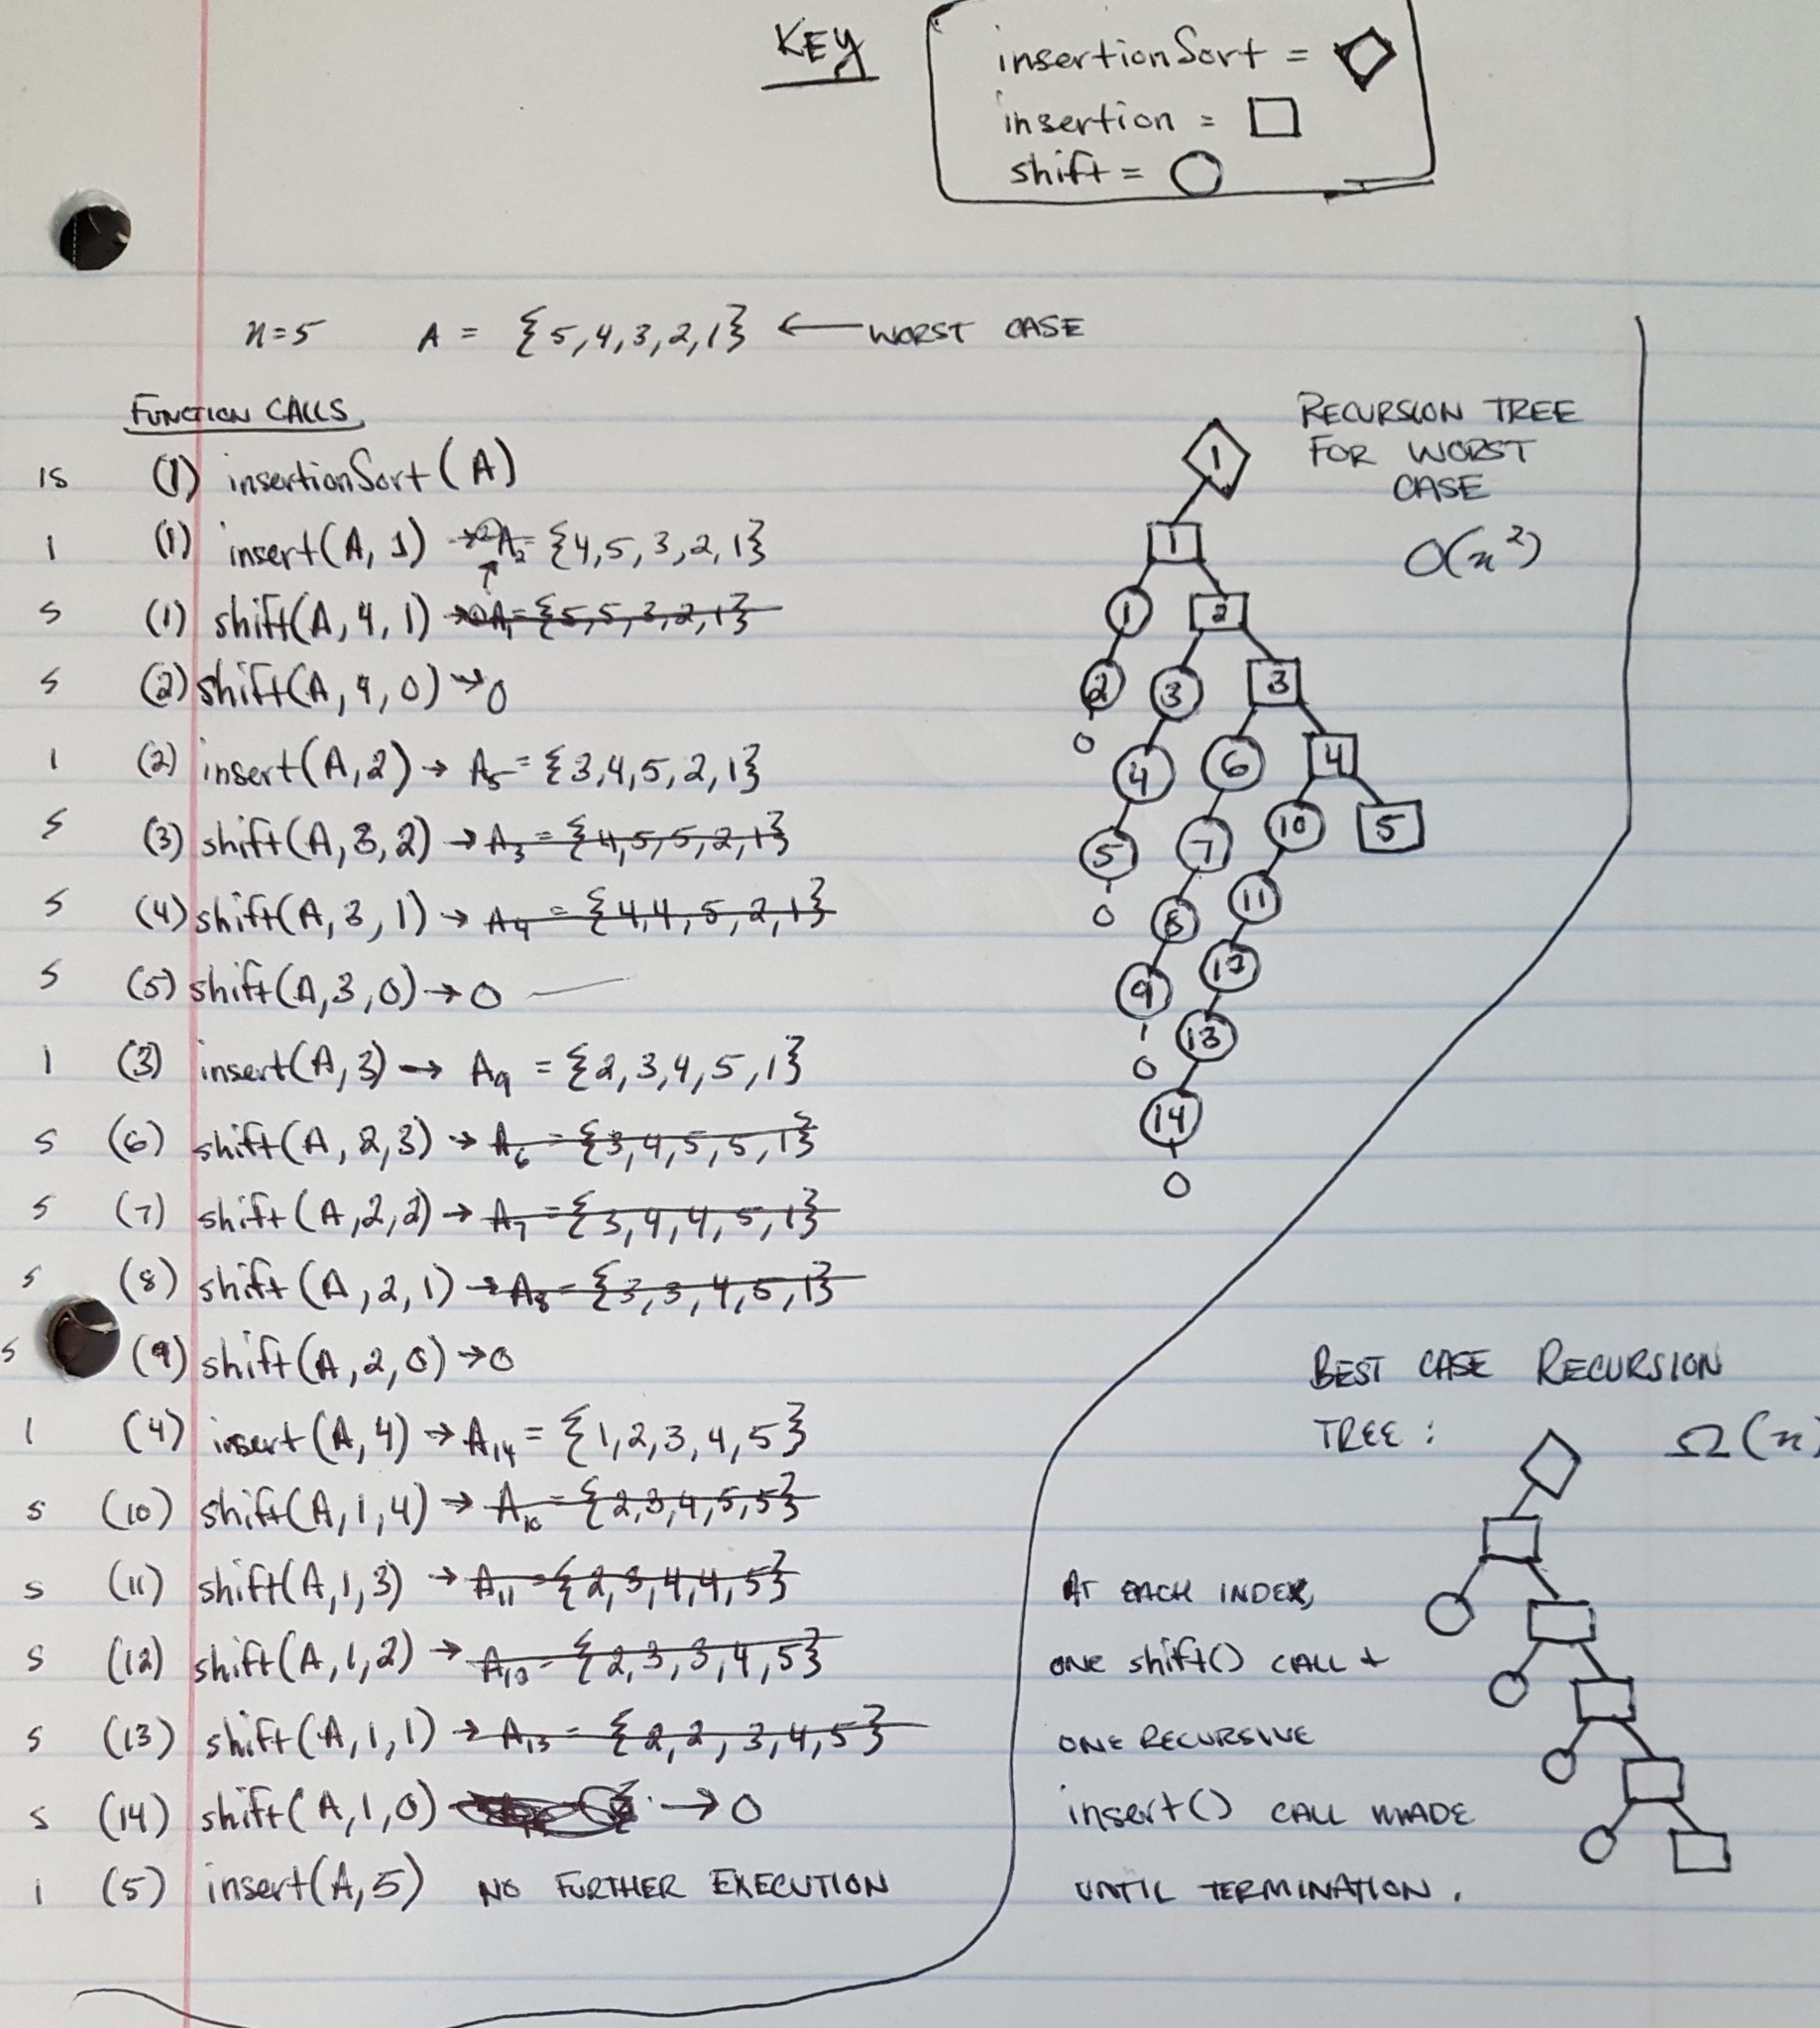 KEY
insertionSort = ◇
insertion = □
shift = ○
n=5 A = {5,4,3,2,1} ← WORST CASE
FUNCTION CALLS
IS (1) insertionSort(A)
I (1) insert(A, 1) → A₂ = {4,5,3,2,1}
S (1) shift(A, 4, 1) → A₁ = {5,5,3,2,1}
S (2) shift(A, 4, 0) → 0
I (2) insert(A,2) → A₅ = {3,4,5,2,1}
S (3) shift(A, 3, 2) → A₃ = {4,5,5,2,1}
S (4) shift(A, 3, 1) → A₄ = {4,4,5,2,1}
S (5) shift(A,3,0) → 0
I (3) insert(A,3) → A₉ = {2,3,4,5,1}
S (6) shift(A, 2,3) → A₆ = {3,4,5,5,1}
S (7) shift(A,2,2) → A₇ = {3,4,4,5,1}
S (8) shift(A,2,1) → A₈ = {3,3,4,5,1}
S (9) shift(A,2,0) → 0
I (4) insert(A,4) → A₁₄ = {1,2,3,4,5}
S (10) shift(A,1,4) → A₁₀ = {2,3,4,5,5}
S (11) shift(A,1,3) → A₁₁ = {2,3,4,4,5}
S (12) shift(A,1,2) → A₁₂ = {2,3,3,4,5}
S (13) shift(A,1,1) → A₁₃ = {2,2,3,4,5}
S (14) shift(A,1,0) → 0
I (5) insert(A,5) NO FURTHER EXECUTION
RECURSION TREE
FOR WORST
CASE
O(n²)
1
1
1 2
2 3 3
0 4 6 4
5 7 10 5
0 8 11
9 12
0 13
14
0
BEST CASE RECURSION
TREE : Ω(n)
AT EACH INDEX,
ONE shift() CALL +
ONE RECURSIVE
insert() CALL MADE
UNTIL TERMINATION.